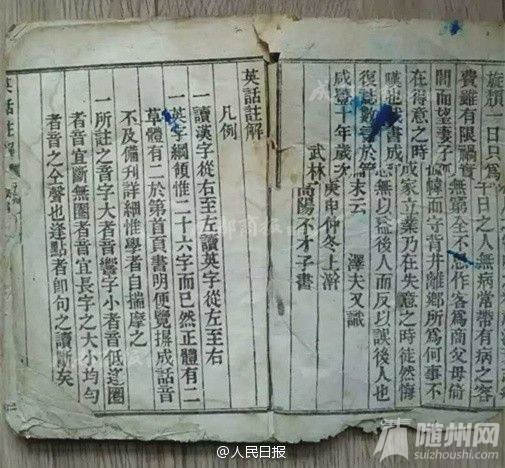 旋頹一日只為午日之人無病常帶有病之容
費雖有限禍實無窮全不思作客為商父母倚
閭而望妻子幃而守背井離鄉所為何事不
在得意之時成家立業乃在失意之時徒然悔
嘆也茲書成恐無以益後人而反以誤後人也
復誌數言於篇末云 澤夫又識
咸豐十年歲次庚申仲冬上澣
武林高陽不才子書
英話註解
凡例
一讀漢字從右至左讀英字從左至右
一英字綱領惟二十六字而已然正體有二
草體有二於第首頁書明便覽摒成話音
不及備刊詳細惟學者自揣摩之
一所註之音字大者音響字小者音低逢圈
者音宜斷無圈者音宜長字之大小均勻
者音之全聲也逢點者即句之讀斷矣
英話註解
@人民日报
随州网
suizhoushi.com